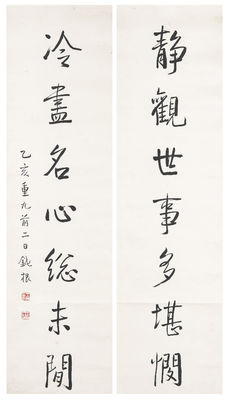 静觀世事多堪憫
冷盡名心總未閒
乙亥重九前二日鈍根